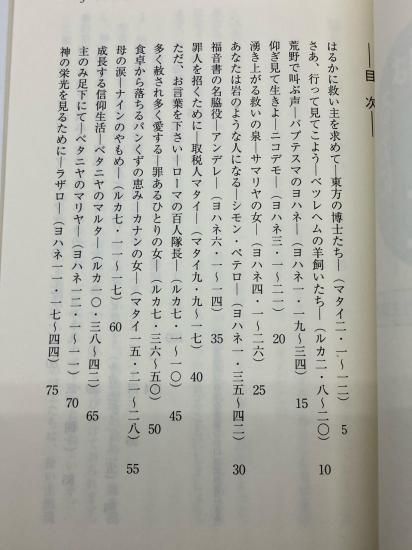 ―目次―
はるかに救い主を求めて―東方の博士たち―(マタイ二・一〜一二) 5
さあ、行って見てこよう―ベツレヘムの羊飼いたち―(ルカ二・八〜二〇) 10
荒野で叫ぶ声―バプテスマのヨハネ―(ヨハネ一・一九〜三四) 15
仰ぎ見て生きよ―ニコデモ―(ヨハネ三・一〜二一) 20
湧き上がる救いの泉―サマリヤの女―(ヨハネ四・一〜二六) 25
あなたは岩のような人になる―シモン・ペテロ―(ヨハネ一・三五〜四二) 30
福音書の名脇役―アンデレ―(ヨハネ六・一〜一四) 35
罪人を招くために―取税人マタイ―(マタイ九・九〜一七) 40
ただ、お言葉を下さい―ローマの百人隊長―(ルカ七・一〜一〇) 45
多く赦され多く愛する―罪あるひとりの女―(ルカ七・三六〜五〇) 50
食卓から落ちるパンくずの恵み―カナンの女―(マタイ一五・二一〜二八) 55
母の涙―ナインのやもめ―(ルカ七・一一〜一七) 60
成長する信仰生活―ベタニヤのマルタ―(ルカ一〇・三八〜四二) 65
主のみ足下にて―ベタニヤのマリヤ―(ヨハネ一二・一〜一一) 70
神の栄光を見るために―ラザロ―(ヨハネ一一・一七〜四四) 75